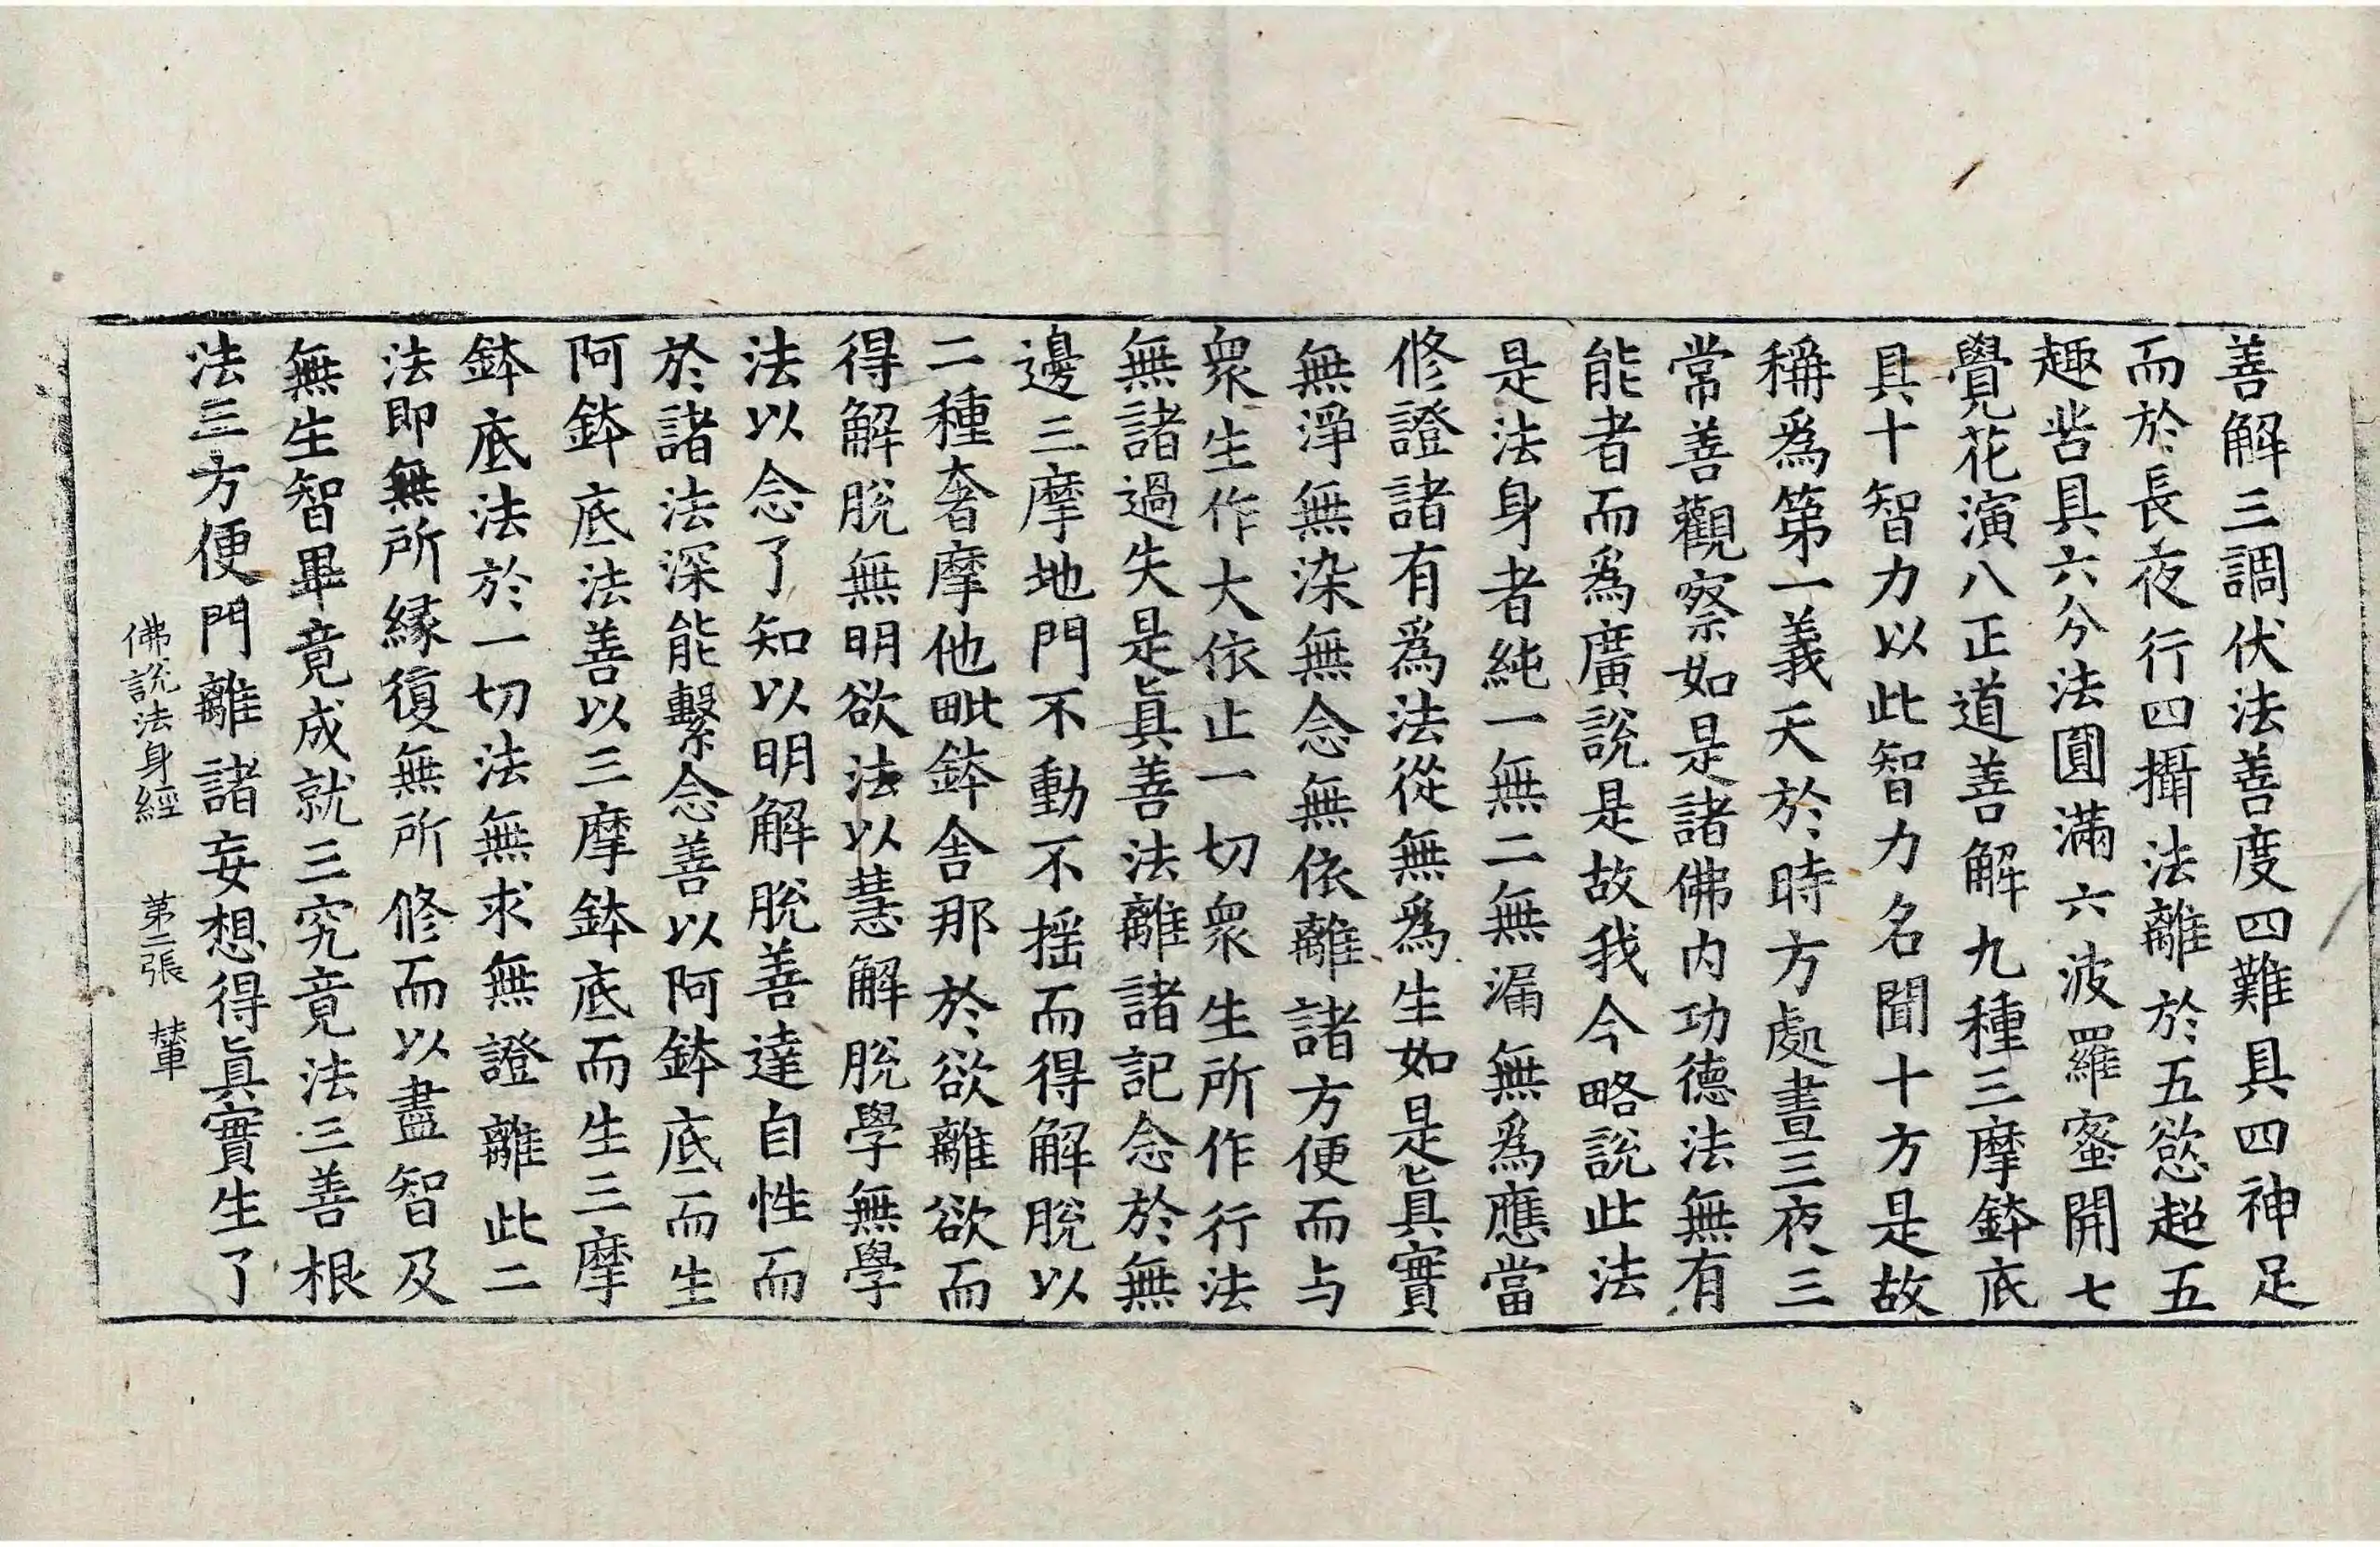 善解三調伏法善度四難具四神足
而於長夜行四攝法離於五慾超五
趣甾具六分法圓滿六波羅蜜開七
覺花演八正道善解九種三摩鉢底
具十智力以此智力名聞十方是故
稱爲第一義天於時方處晝三夜三
常善觀察如是諸佛內功德法無有
能者而爲廣說是故我今略說此法
是法身者純一無二無漏無爲應當
修證諸有爲法從無爲生如是眞實
無淨無染無念無依離諸方便而与
衆生作大依止一切衆生所作行法
無諸過失是眞善法離諸記念於無
邊三摩地門不動不揺而得解脫以
二種奢摩他毗鉢舍那於欲離欲而
得解脫無明欲法以慧解脫學無學
法以念了知以明解脫善達自性而
於諸法深能繫念善以阿鉢底而生
阿鉢底法善以三摩鉢底而生三摩
鉢底法於一切法無求無證離此二
法即無所縁復無所修而以盡智及
無生智畢竟成就三究竟法三善根
法三方便門離諸妄想得眞實生了
佛說法身經 第二張 輦